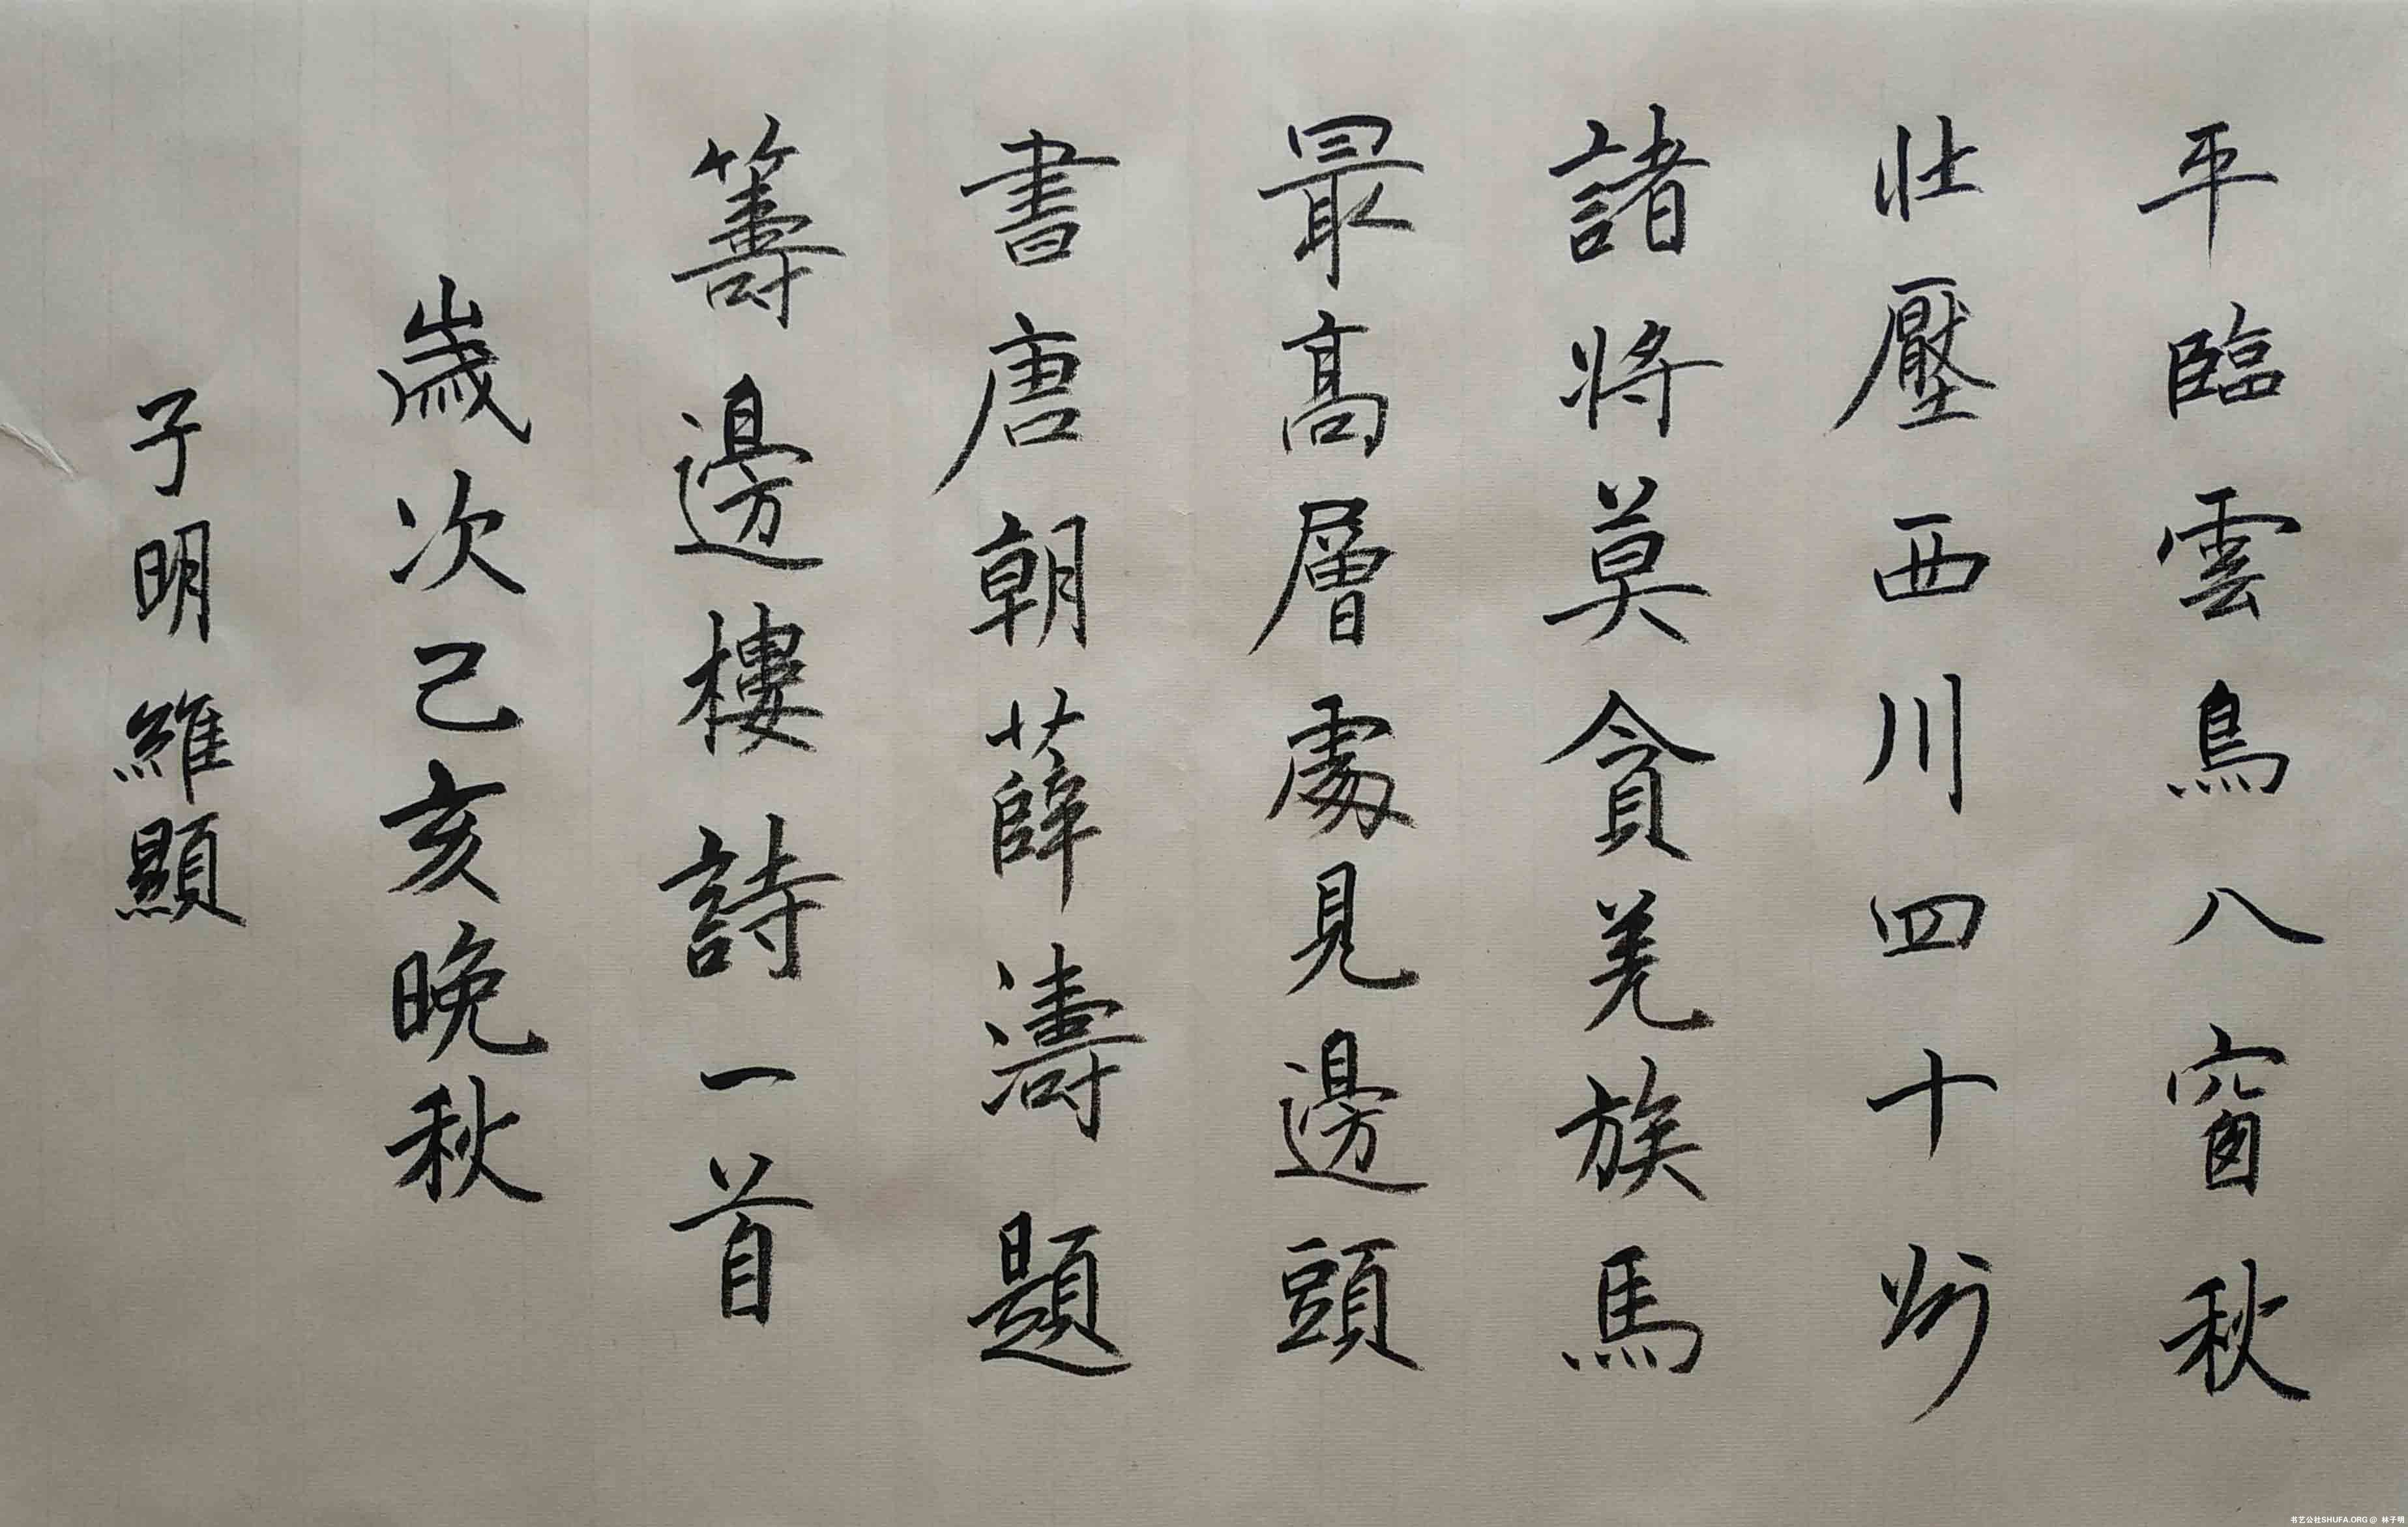 平臨雲鳥八窗秋
壯壓西川四十州
諸將莫貪羌族馬
最高層處見邊頭
書唐朝薛濤題
籌邊樓詩一首
歲次己亥晚秋
子明維顯
书艺公社SHUFA.ORG @ 林子明